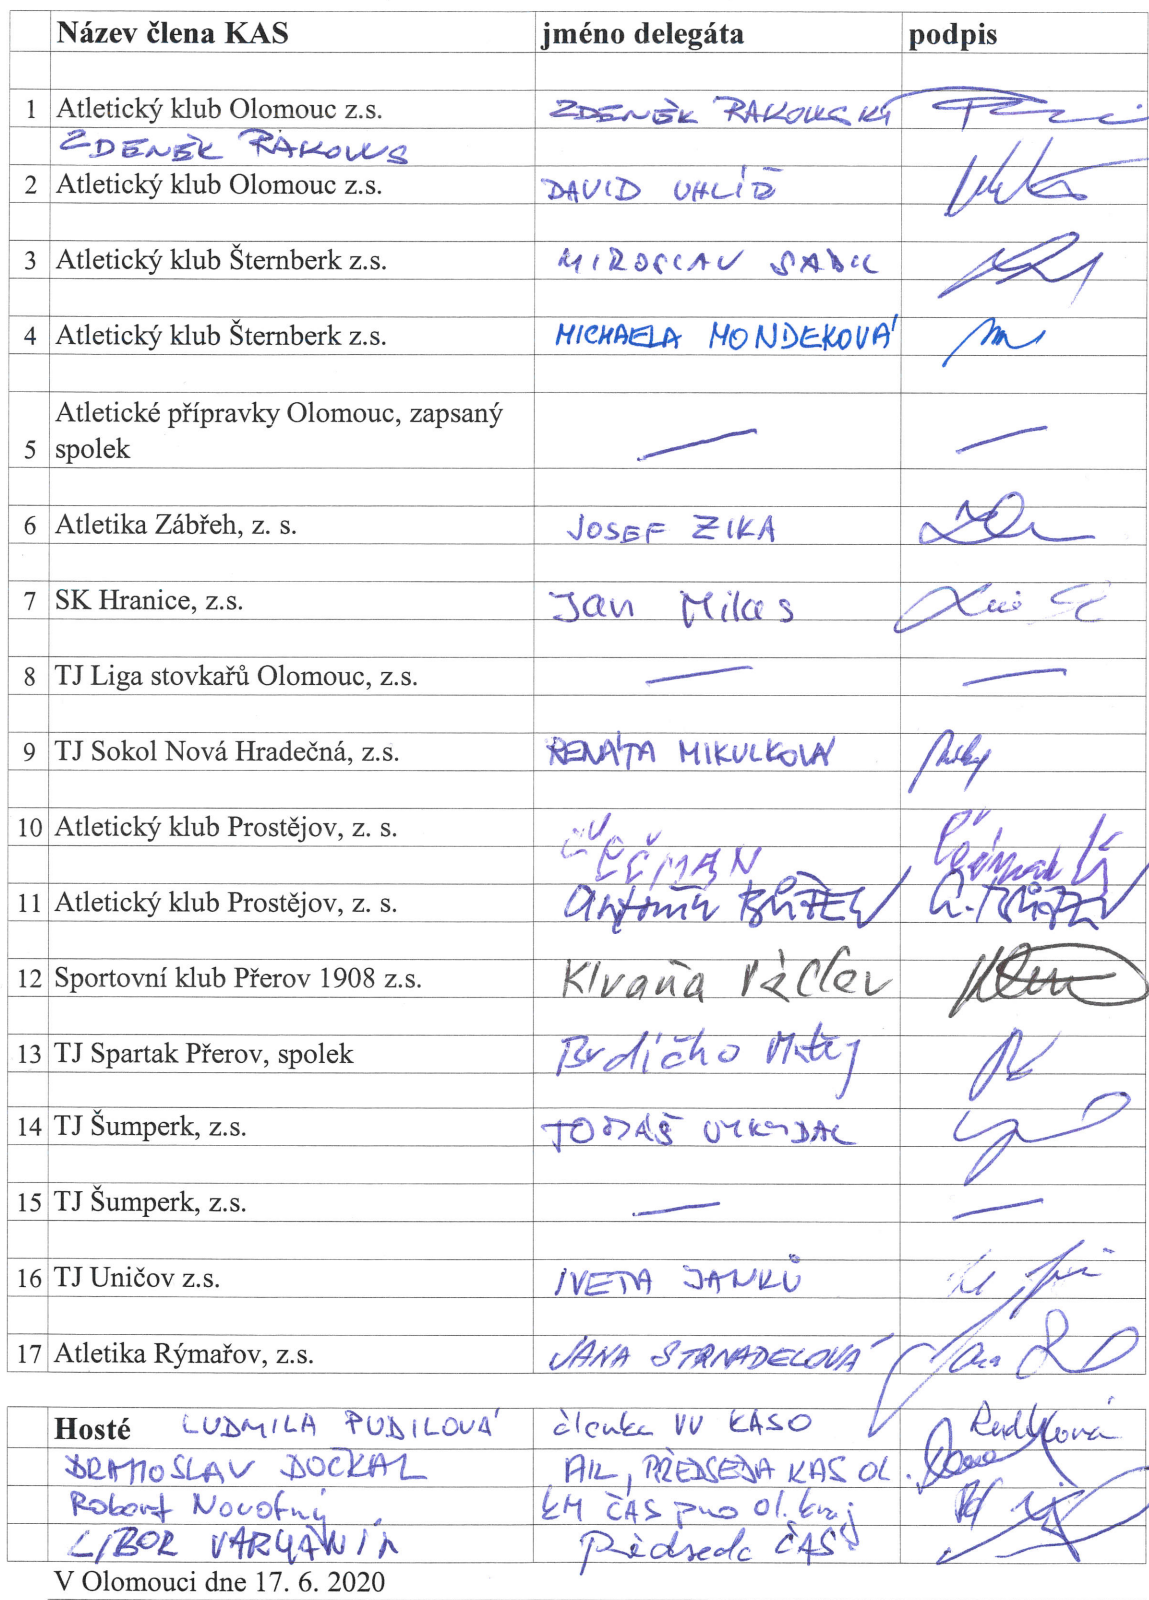 Název člena KAS jméno delegáta podpis
1 Atletický klub Olomouc z.s. ZDENĚK RAKOWSKÝ
ZDENĚK RAKOWS
2 Atletický klub Olomouc z.s. DAVID UHLÍŘ
3 Atletický klub Šternberk z.s. MIROSLAV SADIL
4 Atletický klub Šternberk z.s. MICHAELA MONDEKOVÁ
5 Atletické přípravky Olomouc, zapsaný
spolek — —
6 Atletika Zábřeh, z. s. JOSEF ZIKA
7 SK Hranice, z.s. Jan Milas
8 TJ Liga stovkařů Olomouc, z.s. — —
9 TJ Sokol Nová Hradečná, z.s. RENÁTA MIKULKOVÁ
10 Atletický klub Prostějov, z. s. ČEČMAN
11 Atletický klub Prostějov, z. s. Antonín
12 Sportovní klub Přerov 1908 z.s. Klvaňa Václav
13 TJ Spartak Přerov, spolek Matěj
14 TJ Šumperk, z.s. TOMÁŠ VYKYDAL
15 TJ Šumperk, z.s. — —
16 TJ Uničov z.s. IVETA JANKŮ
17 Atletika Rýmařov, z.s. JANA STRNADELOVÁ
Hosté LUDMILA PUDILOVÁ členka VV KASO
DOČKAL PŘEDSEDA KAS OL.
Robert Novotný KM ČAS pro Ol. kraj
LIBOR VARHANÍK Předseda ČAS
V Olomouci dne 17. 6. 2020